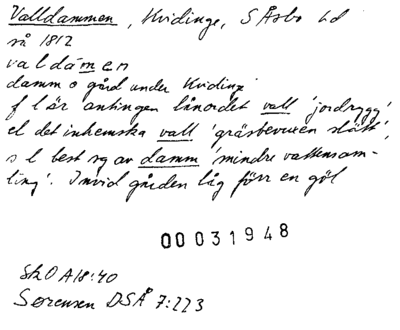 Valldammen, Kvidinge, S Åsbo hd
så 1812
valdámen
damm o gård under Kvidinge
f l är antingen lånordet vall 'jordrygg'
el det inhemska vall 'gräsbevuxen slätt',
s l best sg av damm 'mindre vattensam-
ling'. Invid gården låg förr en göl
00031948
SkO A18:40
Sørensen DSÅ 7:223